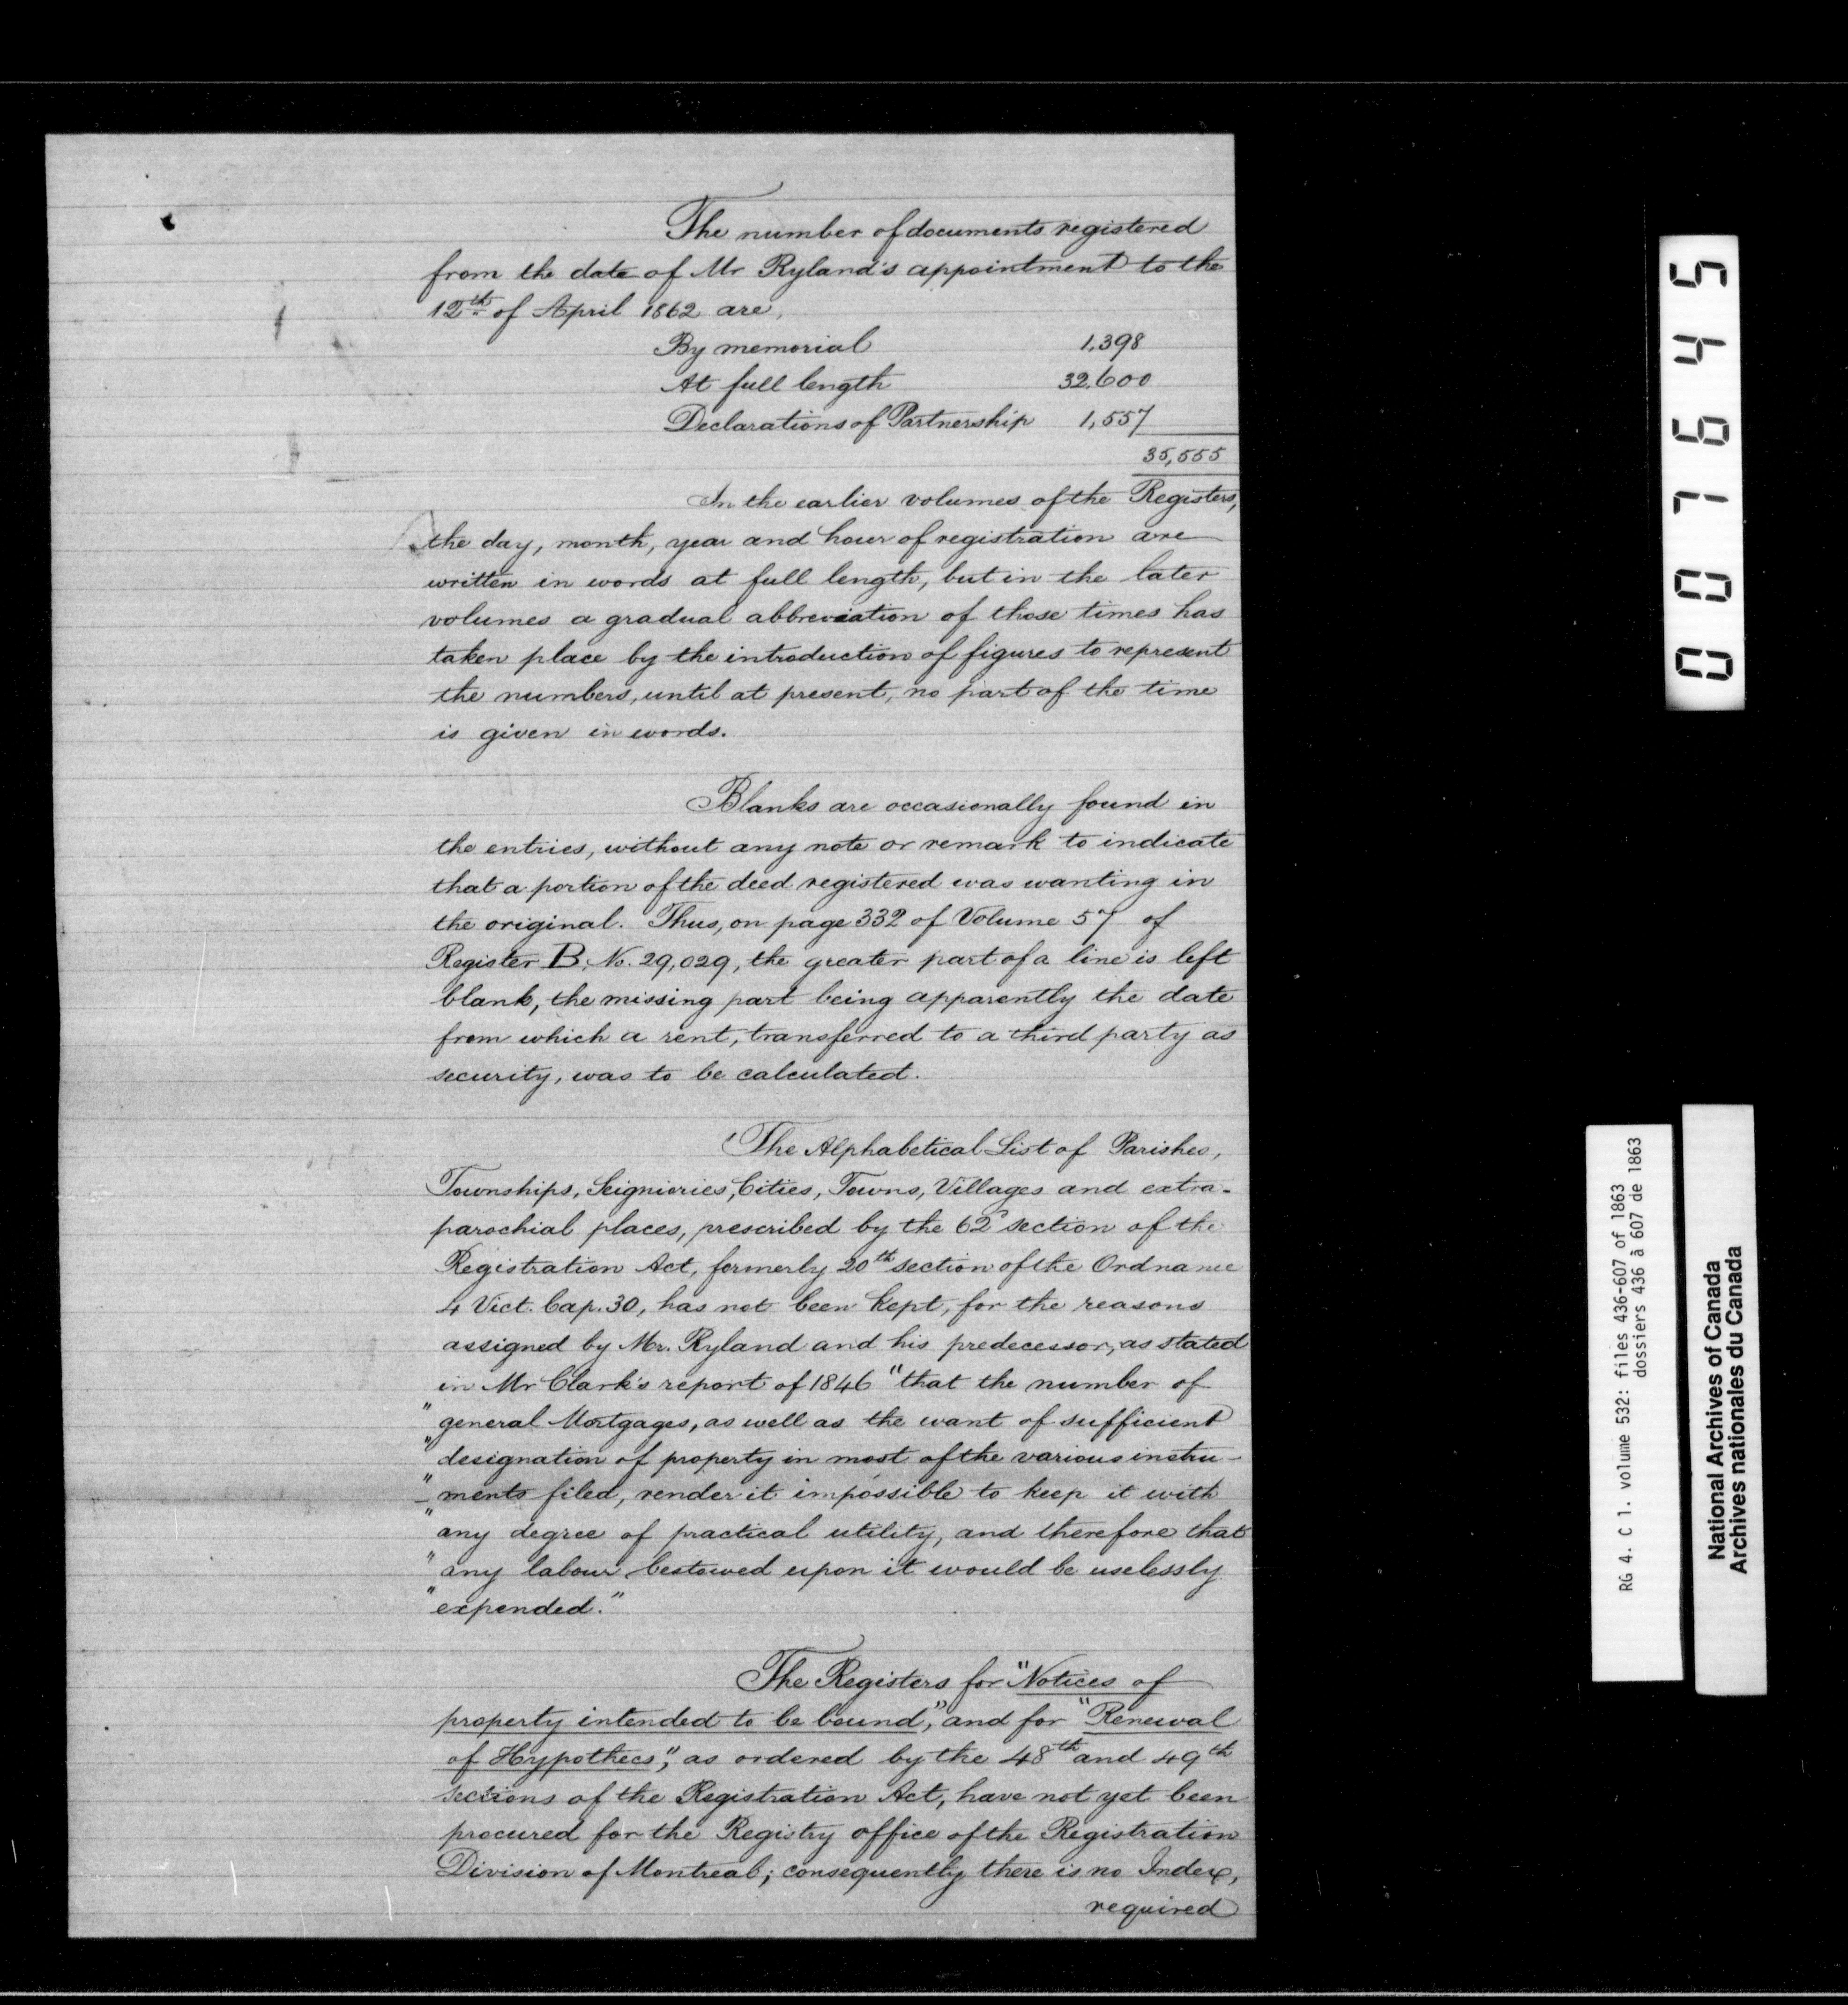 The number of documents registered
from the date of Mr Ryland's appointment to the
12th of April 1862 are,
By memorial 1,398
At full length 32,600
Declarations of Partnership 1,557
35,555
In the earlier volumes of the Registers,
the day, month, year and hour of registration are
written in words at full length, but in the later
volumes a gradual abbreviation of those times has
taken place by the introduction of figures to represent
the numbers, until at present, no part of the time
is given in words.
Blanks are occasionally found in
the entries, without any note or remark to indicate
that a portion of the deed registered was wanting in
the original. Thus, on page 332 of Volume 57 of
Register B, No. 29,029, the greater part of a line is left
blank, the missing part being apparently the date
from which a rent, transferred to a third party as
security, was to be calculated.
The Alphabetical List of Parishes,
Townships, Seigniories, Cities, Towns, Villages and extra-
parochial places, prescribed by the 62d section of the
Registration Act, formerly 20th section of the Ordnance
4 Vict. Cap. 30, has not been kept, for the reasons
assigned by Mr. Ryland and his predecessor, as stated
in Mr Clark's report of 1846 "that the number of
"general Mortgages, as well as the want of sufficient
"designation of property in most of the various instru-
"-ments filed, render it impossible to keep it with
"any degree of practical utility, and therefore that
"any labour bestowed upon it would be uselessly
"expended."
The Registers for "Notices of
property intended to be bound," and for "Renewal
of Hypothecs", as ordered by the 48th and 49th
sections of the Registration Act, have not yet been
procured for the Registry office of the Registration
Division of Montreal; consequently there is no Index,
required
007645
RG 4. C 1. volume 532: files 436-607 of 1863
dossiers 436 à 607 de 1863
National Archives of Canada
Archives nationales du Canada